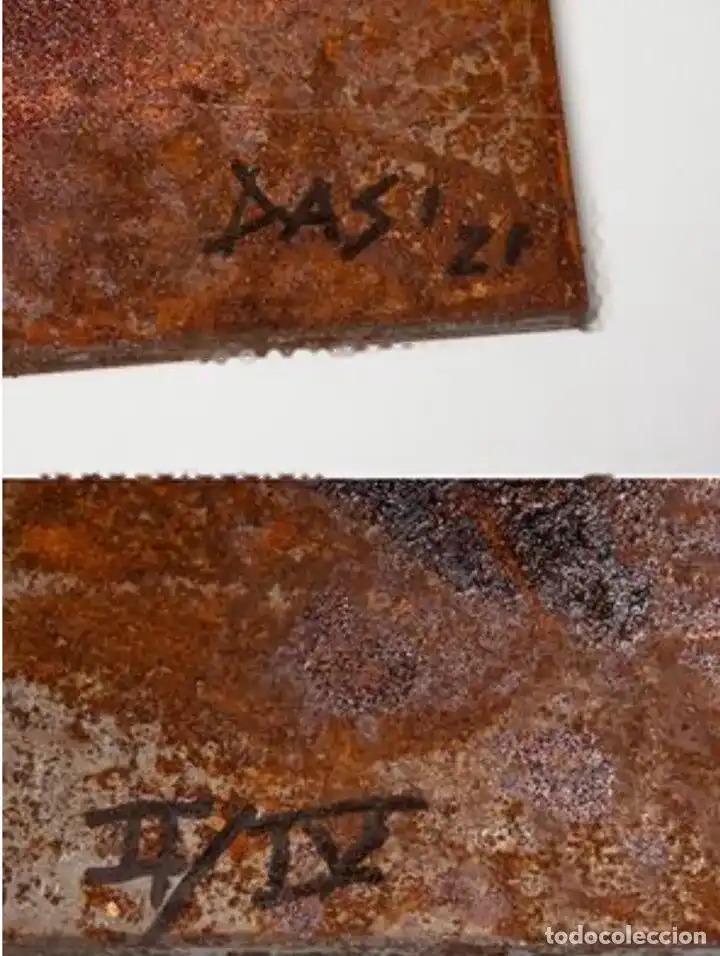 DASÍ 21
II/IV
todocoleccion